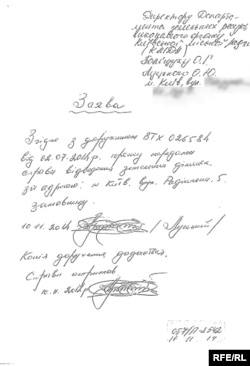 Директору Департа-
мента земельних ресурсів
виконавчого органу
Київської міської ради
(КМДА)
О.Г
О.Ю.
м. Київ, вул.
Заява
Згідно з дорученням ВТХ 026584
від 02.07.2014р. прошу передати
справи відведення земельної ділянки
за адресою: м Київ, вул. Радіальна 5.
замовнику.
10.11.2014 /Луцький/
Копія доручення додається.
Справи отримав
10.11.2014р
RFE/RL